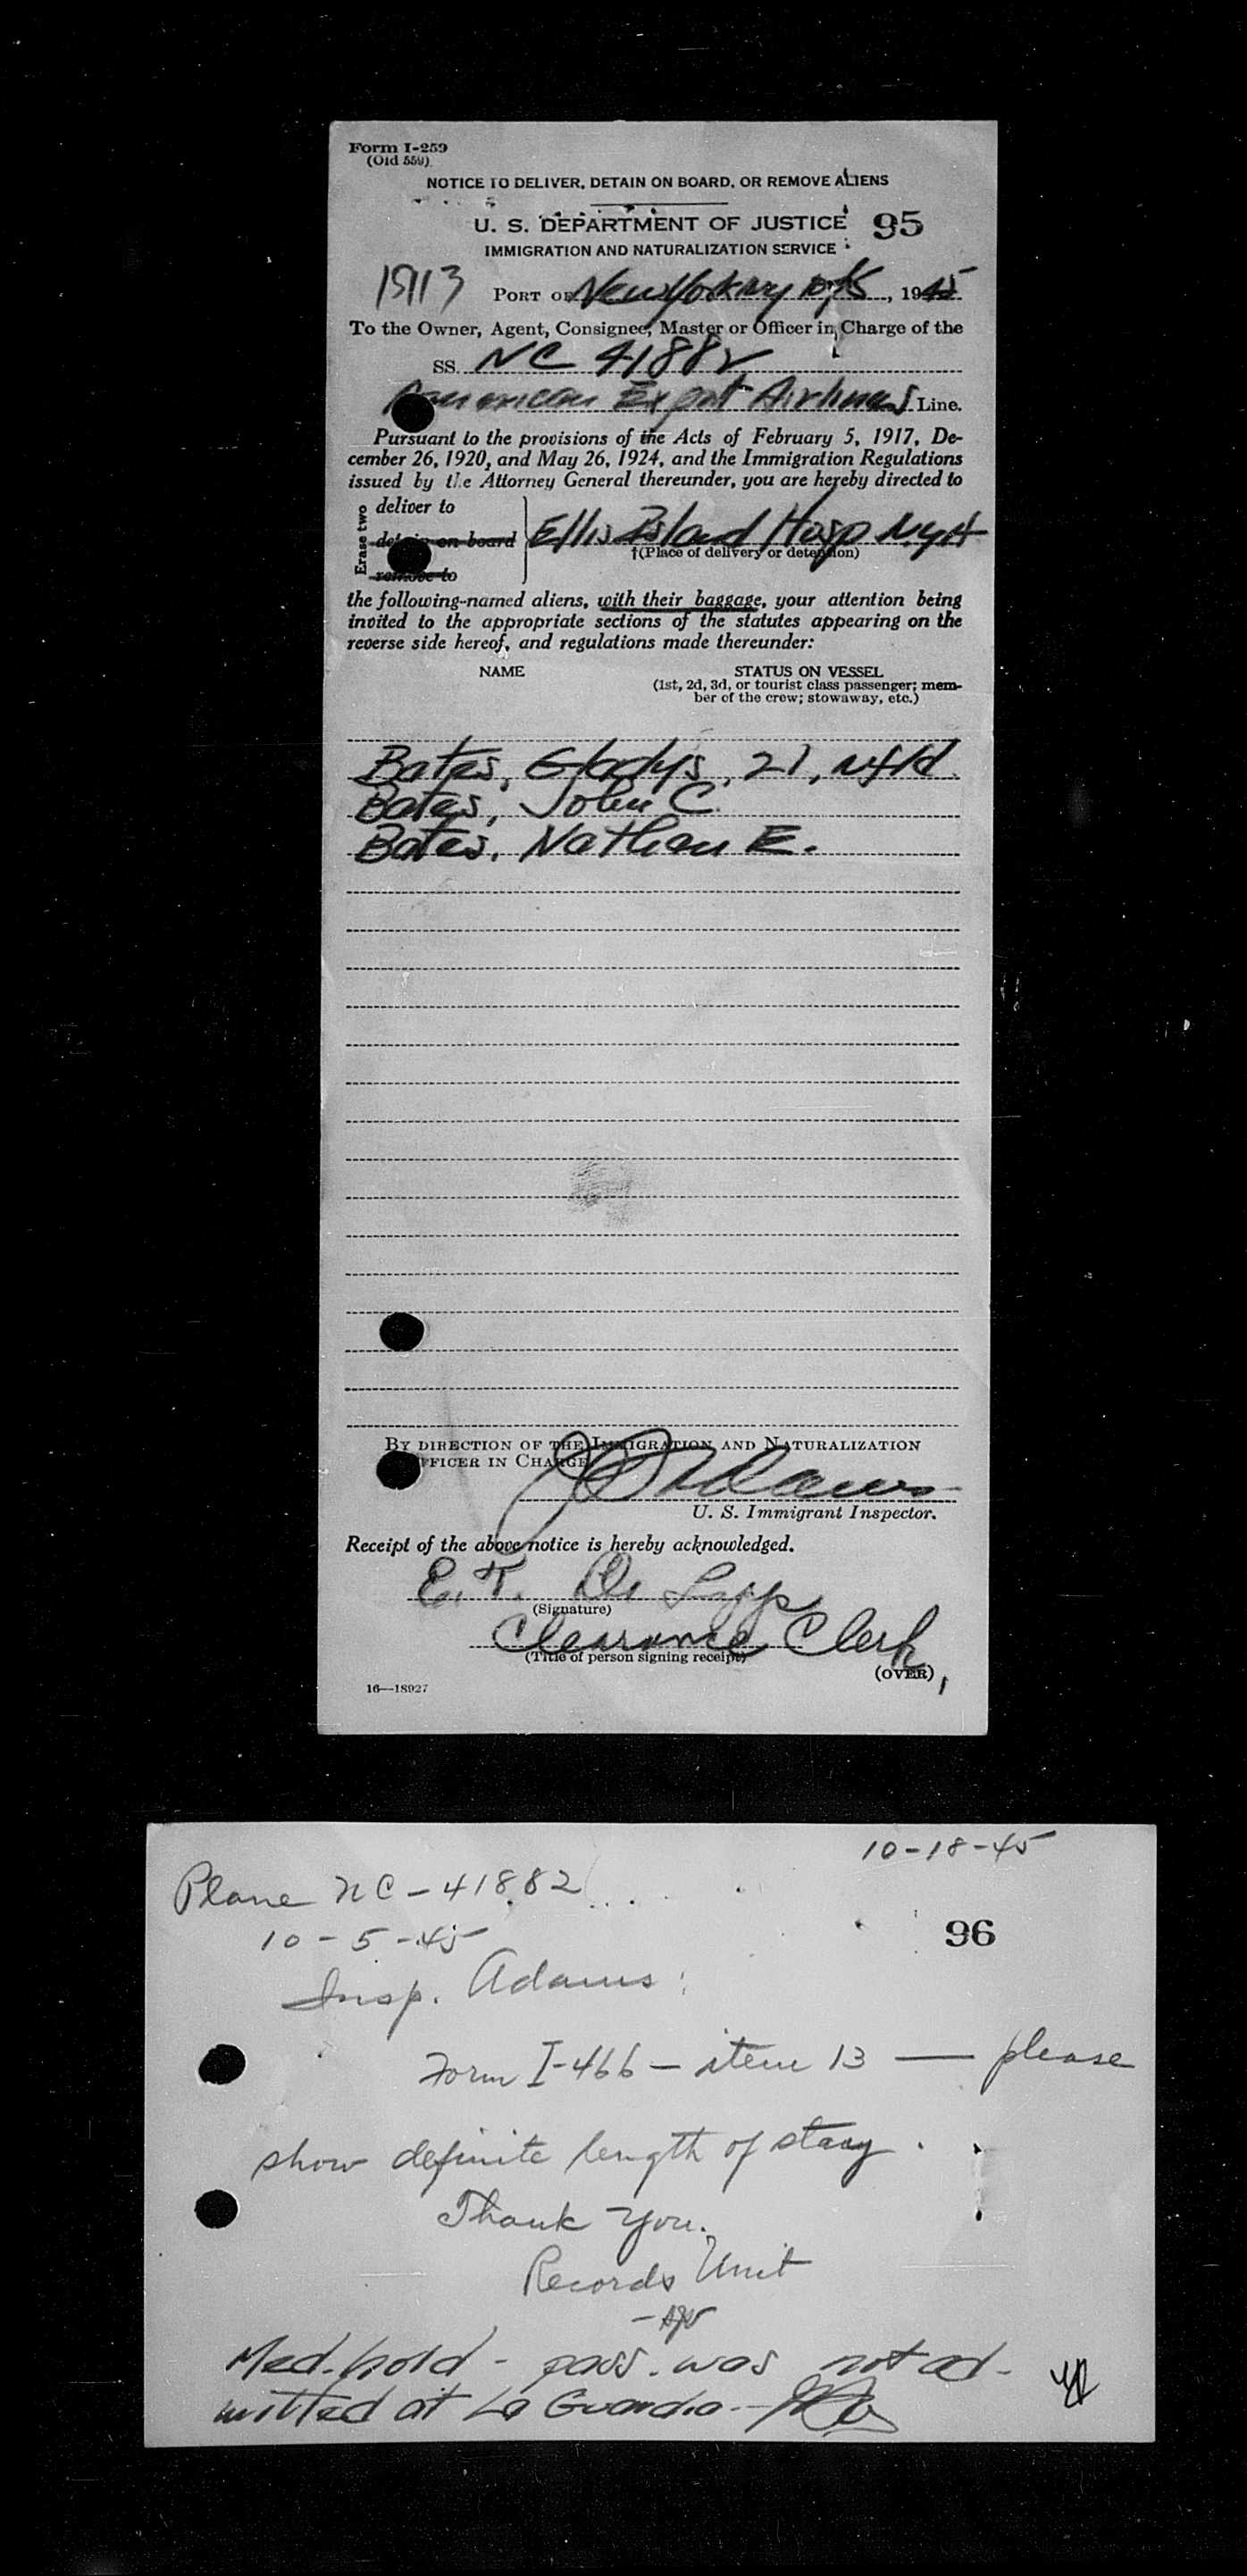 Form I-259
(Old 559)
NOTICE TO DELIVER, DETAIN ON BOARD, OR REMOVE ALIENS
U. S. DEPARTMENT OF JUSTICE 95
IMMIGRATION AND NATURALIZATION SERVICE
15113 PORT OF New York NY 10/5, 1945
To the Owner, Agent, Consignee, Master or Officer in Charge of the
SS. NC 41882
American Export Airlines Line.
Pursuant to the provisions of the Acts of February 5, 1917, De-
cember 26, 1920, and May 26, 1924, and the Immigration Regulations
issued by the Attorney General thereunder, you are hereby directed to
Erase two
deliver to
detain on board
remove to
Ellis Island Hosp NYH
†(Place of delivery or detention)
the following-named aliens, with their baggage, your attention being
invited to the appropriate sections of the statutes appearing on the
reverse side hereof, and regulations made thereunder:
NAME STATUS ON VESSEL
(1st, 2d, 3d, or tourist class passenger; mem-
ber of the crew; stowaway, etc.)
Bates, Gladys, 21, Nfld.
Bates, John C.
Bates, Nathan E.
BY DIRECTION OF THE IMMIGRATION AND NATURALIZATION
OFFICER IN CHARGE
Adams
U. S. Immigrant Inspector.
Receipt of the above notice is hereby acknowledged.
E. T.
(Signature)
Clearance Clerk
(Title of person signing receipt)
(OVER)
16—18927
10-18-45
Plane NC-41882
10-5-45
96
Insp. Adams:
Form I-466 — item 13 — please
show definite length of stay.
Thank you.
Records Unit
Med. hold - pass. was not ad-
mitted at La Guardia -